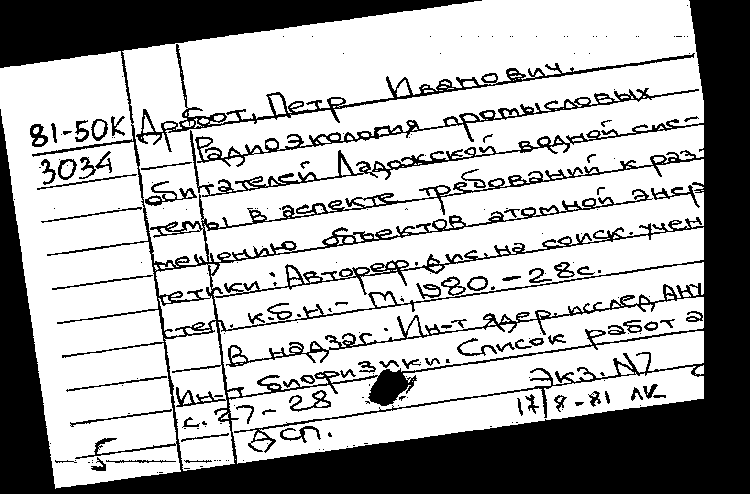 81-50К
3034
Дробот, Петр Иванович.
Радиоэкология промысловых
обитателей Ладожской водной сис-
темы в аспекте требований к раз-
мещению объектов атомной энер
гетики: Автореф. дис. на соиск. учен
степ. к.б.н. - М., 1980. - 28с.
В надзаг.: Ин-т ядер. исслед. АНУ
Ин-т биофизики. Список работ а
с. 27-28
Экз. N7
17/8-81 ЛК
Дсп.